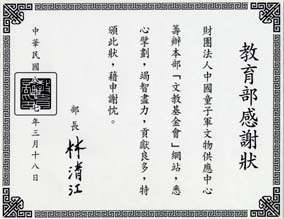 教育部感謝狀
財團法人中國童子軍文物供應中心
籌辦本部「文教基金會」網站，悉
心擘劃，竭智盡力，貢獻良多，特
頒此狀，藉申謝忱。
部長 林清江
中華民國八十七年三月十八日